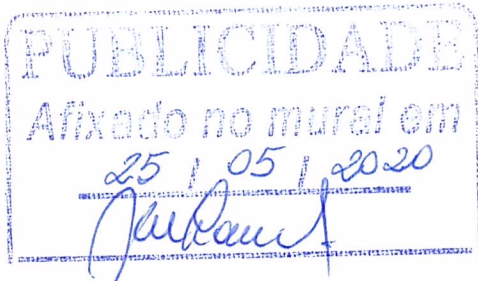 PUBLICIDADE
Afixado no mural em
25 / 05 / 2020